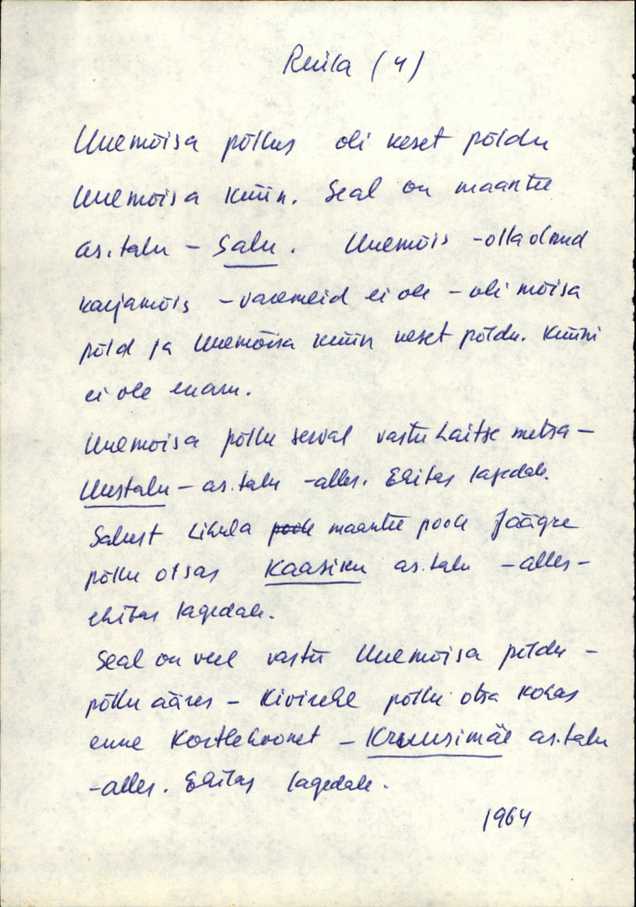 Ruila (4)
Uuemõisa põllus oli keset põldu
Uuemõisa küün. Seal on maantee
as.talu – Salu. Uuemõis – olla olnud
karjamõis – varemeid ei ole – oli mõisa
põld ja Uuemõisa küün keset põldu. Küüni
ei ole enam.
Uuemõisa põllu serval vastu Laitse metsa –
Uustalu – as.talu – alles. Ehitas lagedale.
Salust Liivula poole maantee poole Jäägre
põllu otsas Kaasiku as.talu – alles –
ehitas lagedale.
Seal on veel vastu Uuemõisa põldu –
põllu ääres – Kivirehe põllu otsa kohas
enne Kortlehoonet – Kruusimäe as.talu
– alles. Ehitas lagedale.
1964